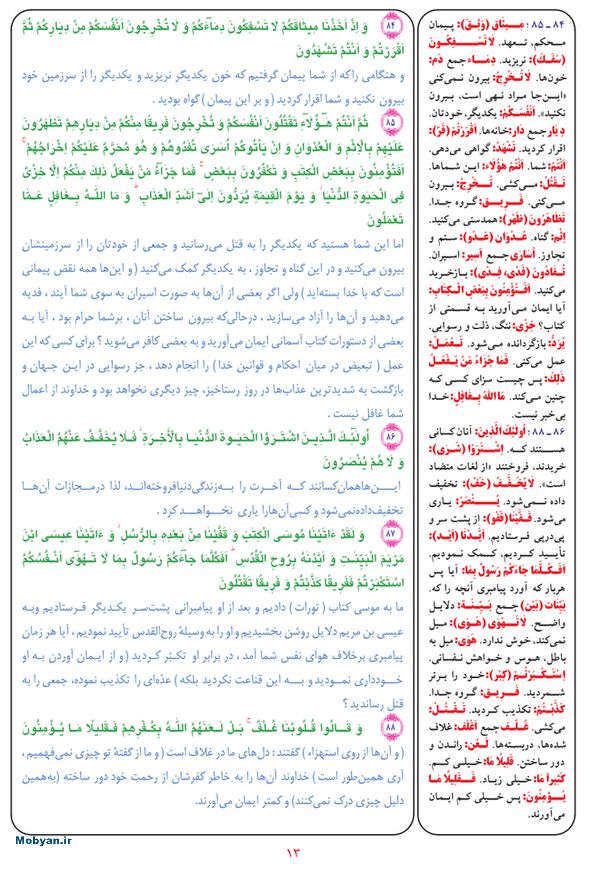 ۸۴ وَ اِذْ اَخَذْنَا مِيثَاقَكُمْ لَا تَسْفِكُونَ دِمَاءَكُمْ وَ لَا تُخْرِجُونَ اَنْفُسَكُمْ مِنْ دِيَارِكُمْ ثُمَّ
اَقْرَرْتُمْ وَ اَنْتُمْ تَشْهَدُونَ
و هنگامی راکه از شما پیمان گرفتیم که خون یکدیگر نریزید و یکدیگر را از سرزمین خود
بیرون نکنید و شما اقرار کردید ( و بر این پیمان ) گواه بودید .
۸۵ ثُمَّ اَنْتُمْ هٰٓؤُلَآءِ تَقْتُلُونَ اَنْفُسَكُمْ وَ تُخْرِجُونَ فَرِيقًا مِنْكُمْ مِنْ دِيَارِهِمْ تَظَهَرُونَ
عَلَيْهِمْ بِالْاِثْمِ وَ الْعُدْوَانِ وَ اِنْ يَأْتُوكُمْ اُسَرَى تُفَدُوهُمْ وَ هُوَ مُحَرَّمٌ عَلَيْكُمْ اِخْرَاجُهُمْ
اَفَتُؤْمِنُونَ بِبَعْضِ الْكِتَبِ وَ تَكْفُرُونَ بِبَعْضٍ فَمَا جَزَآءُ مَنْ يَفْعَلُ ذَلِكَ مِنْكُمْ اِلَّا خِزْىٌ
فِى الْحَيَوةِ الدُّنْيَا وَ يَوْمَ الْقِيَمَةِ يُرَدُّونَ اِلَى اَشَدِّ الْعَذَابِ وَ مَا اللهُ بِغَافِلٍ عَمَّا
تَعْمَلُونَ
اما این شما هستید که یکدیگر را به قتل می‌رسانید و جمعی از خودتان را از سرزمینشان
بیرون می‌کنید و در این گناه و تجاوز ، به یکدیگر کمک می‌کنید ( و این‌ها همه نقض پیمانی
است که با خدا بسته‌اید ) ولی اگر بعضی از آن‌ها به صورت اسیران به سوی شما آیند ، فدیه
می‌دهید و آن‌ها را آزاد می‌سازید ، درحالی‌که بیرون ساختن آنان ، برشما حرام بود ، آیا به
بعضی از دستورات کتاب آسمانی ایمان می‌آورید و به بعضی کافر می‌شوید ؟ برای کسی که این
عمل ( تبعیض در میان احکام و قوانین خدا ) را انجام دهد ، جز رسوایی در این جهان و
بازگشت به شدیدترین عذاب‌ها در روز رستاخیز ، چیز دیگری نخواهد بود و خداوند از اعمال
شما غافل نیست .
۸۶ اُولَئِكَ الَّذِينَ اشْتَرَوُا الْحَيَوةَ الدُّنْيَا بِالْاَخِرَةِ فَلَا يُخَفَّفُ عَنْهُمُ الْعَذَابُ
وَ لَا هُمْ يُنْصَرُونَ
این‌ها همان کسانند که آخرت را به زندگی دنیا فروخته‌اند، لذا در مجازات آن‌ها
تخفیف داده نمی‌شود و کسی آن‌ها را یاری نخواهد کرد .
۸۷ وَ لَقَدْ ءَاتَيْنَا مُوسَى الْكِتَبَ وَ قَفَّيْنَا مِنْ بَعْدِهِ بِالرُّسُلِ وَ ءَاتَيْنَا عِيسَى ابْنَ
مَرْيَمَ الْبَيِّنَتِ وَ اَيَّدْنَهُ بِرُوحِ الْقُدُسِ اَفَكُلَّمَا جَآءَكُمْ رَسُولٌ بِمَا لَا تَهْوَى اَنْفُسُكُمُ
اسْتَكْبَرْتُمْ فَفَرِيقًا كَذَّبْتُمْ وَ فَرِيقًا تَقْتُلُونَ
ما به موسی کتاب ( تورات ) دادیم و بعد از او پیامبرانی پشت‌سر یکدیگر فرستادیم و به
عیسی بن مریم دلایل روشن بخشیدیم و او را به وسیلهٔ روح‌القدس تأیید نمودیم ، آیا هر زمان
پیامبری برخلاف هوای نفس شما آمد ، در برابر او تکبّر کردید ( و از ایمان آوردن به او
خودداری نمودید و به این قناعت نکردید بلکه ) عده‌ای را تکذیب نموده، جمعی را به
قتل رساندید ؟
۸۸ وَ قَالُوا قُلُوبُنَا غُلْفٌ بَلْ لَعَنَهُمُ اللهُ بِكُفْرِهِمْ فَقَلِيلًا مَا يُؤْمِنُونَ
( و آن‌ها از روی استهزاء ) گفتند : دل‌های ما در غلاف است ( و ما از گفتهٔ تو چیزی نمی‌فهمیم ،
آری همین‌طور است ) خداوند آن‌ها را به خاطر کفرشان از رحمت خود دور ساخته (به‌همین
دلیل چیزی درک نمی‌کنند) و کمتر ایمان می‌آورند.
۸۴ ـ ۸۵ : مِيثَاق (وَثِقَ): پیمان
محکم، تعهد. لَا تَسْفِكُونَ
(سَفَكَ): نریزید. دِمَاء جمع دَم:
خون‌ها. لَا تُخْرِجُ: بیرون نمی‌کنی
«این‌جا مراد نهی است، بیرون
نکنید». اَنْفُسَكُمْ: یکدیگر، خودتان.
دِيَار جمع دَار: خانه‌ها. اَقْرَرْتُمْ (قَرَّ):
اقرار کردید. تَشْهَدُ: گواهی می‌دهی.
اَنْتُمْ: شما. اَنْتُمْ هَؤُلَاءِ: این شماها.
تَقْتُلُ: می‌کشی. تُخْرِجُ: بیرون
می‌کنی. فَرِيق: گروه جدا.
تَظَاهَرُونَ (ظَهَرَ): همدستی می‌کنید.
اِثْم: گناه. عُدْوَان (عَدَوَ): ستم و
تجاوز. اُسَارَى جمع اَسِير: اسیران.
تُفَادُونَ (فَدَى، فِدْى): بازخرید
می‌کنید. اَفَتُؤْمِنُونَ بِبَعْضِ الْكِتَابِ:
آیا ایمان می‌آورید به قسمتی از
کتاب؟ خِزْى: ننگ، ذلت و رسوایی.
يُرَدُّ: بازگردانده می‌شود. تَعْمَلُ:
عمل می‌کنی. فَمَا جَزَاءُ مَنْ يَفْعَلُ
ذَلِكَ: پس چیست سزای کسی که
چنین می‌کند. مَا اللهُ بِغَافِلٍ: خدا
بی‌خبر نیست.
۸۶ ـ ۸۸ : اُولَئِكَ الَّذِينَ: آنان کسانی
هستند که. اِشْتَرَوْا (شَرَى):
خریدند، فروختند «از لغات متضاد
است». لَا يُخَفَّفُ (خَفَّ): تخفیف
داده نمی‌شود. يُنْصَرُ: یاری
می‌شود. قَفَّيْنَا (قَفَوَ): از پشت سر و
پی‌درپی فرستادیم. اَيَّدْنَا (اَيَدَ):
تأیید کردیم، کمک نمودیم.
اَفَكُلَّمَا جَاءَكُمْ رَسُولٌ بِمَا: آیا پس
هربار که آورد پیامبری آنچه را که.
بَيِّنَات (بَيَنَ) جمع بَيِّنَة: دلایل
واضح. لَا تَهْوَى (هَوَى): میل
نمی‌کند، خوش ندارد. هَوَى: میل به
باطل، هوس و خواهش نفسانی.
اِسْتَكْبَرْتُمْ (كَبُرَ): خود را برتر
شمردید. فَرِيق: گروه جدا.
كَذَّبْتُمْ: تکذیب کردید. تَقْتُلُ:
می‌کشی. غُلْف جمع اَغْلَف: غلاف
شده‌ها، دربسته‌ها. لَعْن: راندن و
دور ساختن. قَلِيلًا مَا: خیلی کم.
كَثِيرًا مَا: خیلی زیاد. فَقَلِيلًا مَا
يُؤْمِنُونَ: پس خیلی کم ایمان
می‌آورند.
Mobyan.ir
۱۳